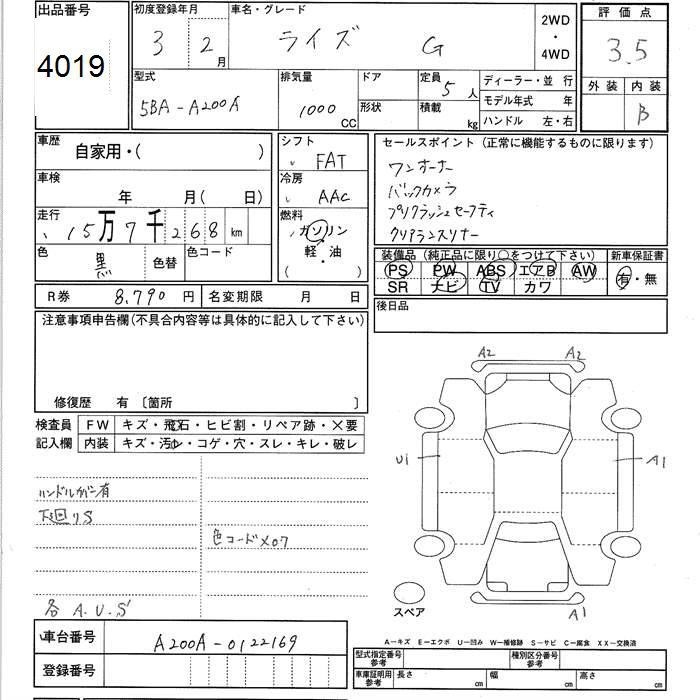 出品番号
4019
初度登録年月
3 2月
車名・グレード
ライズ G
2WD
・
4WD
評価点
3.5
型式
5BA-A200A
排気量
1000 CC
ドア
形状
定員
5人
積載
kg
ディーラー・並行
モデル年式 年
ハンドル 左・右
外装 内装
B
車歴
自家用・( )
車検
年 月( 日)
走行
15万7千268km
色
黒
色替
色コード
シフト
FAT
冷房
AAC
燃料
ガソリン
軽・油
・( )
セールスポイント(正常に機能するものに限ります)
ワンオーナー
バックカメラ
プリクラッシュセーフティ
クリアランスソナー
装備品(純正品に限り○をつけて下さい)
PS PW ABS エアB AW
SR ナビ TV カワ
新車保証書
有・無
R券 8,790円
名変期限 月 日
後日品
注意事項申告欄(不具合内容等は具体的に記入して下さい)
修復歴 有〔箇所 〕
検査員
記入欄
FW キズ・飛石・ヒビ割・リペア跡・×要
内装 キズ・汚れ・コゲ・穴・スレ・キレ・破レ
下廻りS
色コードX07
各A.U.S
A2 A2
U1
A1
A1
スペア
A-キズ E-エクボ U-凹み W-補修跡 S-サビ C-腐食 XX-交換済
車台番号
A200A-0122169
登録番号
型式指定番号
参考
種別区分番号
参考
車庫証明用
参考
長さ cm 幅 cm 高さ cm